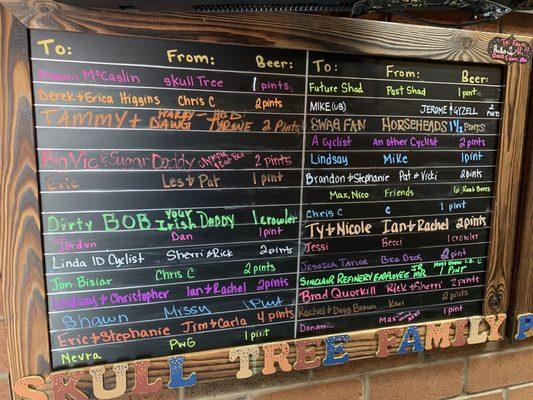 To: From: Beer:
Shawn McCaslin Skull Tree 1 pints
Derek + Erica Higgins Chris C 2 pints
TAMMY + DAWG TYRONE 2 Pints
Big Vic & Sugar Daddy 2 pints
Eric Les + Pat 1 pint
Dirty BOB your Irish DADDY 1 crowler
Jordyn Dan 1 pint
Linda ID Cyclist Sherri + Rick 2 pints
Jon Bisiar Chris C 2 pints
Lindsay + Christopher Ian + Rachel 2 pints
Shawn Missy 1 Pint
Eric + Stephanie Jim + Carla 4 pints
Nevra PWG 1 pint
To: From: Beer:
Future Shad Past Shad 1 pint
MIKE (UB) JEROME & GYZELL 2 PINTS
SWAG FAN HORSEHEADS 1 1/2 PINTS
A Cyclist An other Cyclist 2 pints
Lindsay Mike 1 pint
Brandon + Stephanie Pat + Vicki 2 pints
Max, Nico Friends 6 Root Beers
Chris C C 1 pint
Ty + Nicole Ian + Rachel 2 pints
Jessi Becci 1 crowler
JESSICA TAYLOR BIG DICK 2 pint
SINCLAIR REFINERY EMPLOYEE 1 PINT
Brad Quorkill Rick + Sherri 2 pints
Rachel + Doug Brown Kari 2 pints
Danamic Max 2 pints
SKULL TREE FAMILY